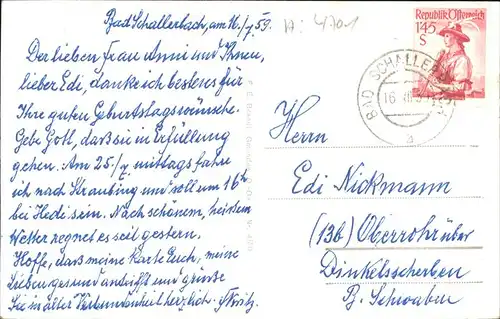 Bad Schallerbach, am 16./7 59.
A: 4701
Der lieben Frau Anni und Ihnen,
lieber Edi, danke ich bestens für
Ihre guten Geburtstagswünsche.
Gebe Gott, dass sie in Erfüllung
gehen. Am 25./7. mittags fahre
ich nach Straubing und soll um 16 h
bei Hedi sein. Nach schönem, heissem
Wetter regnet es seit gestern.
Hoffe, dass meine Karte Euch, meine
Lieben gesund antrifft und grüsse
Sie in alter Verbundenheit herzlich.
Republik Österreich
1.45
S
BAD SCHALLERB
16. VII.
a
Herrn
Edi Nickmann
(13b) Oberrohr über
Dinkelscherben
B. Schwaben